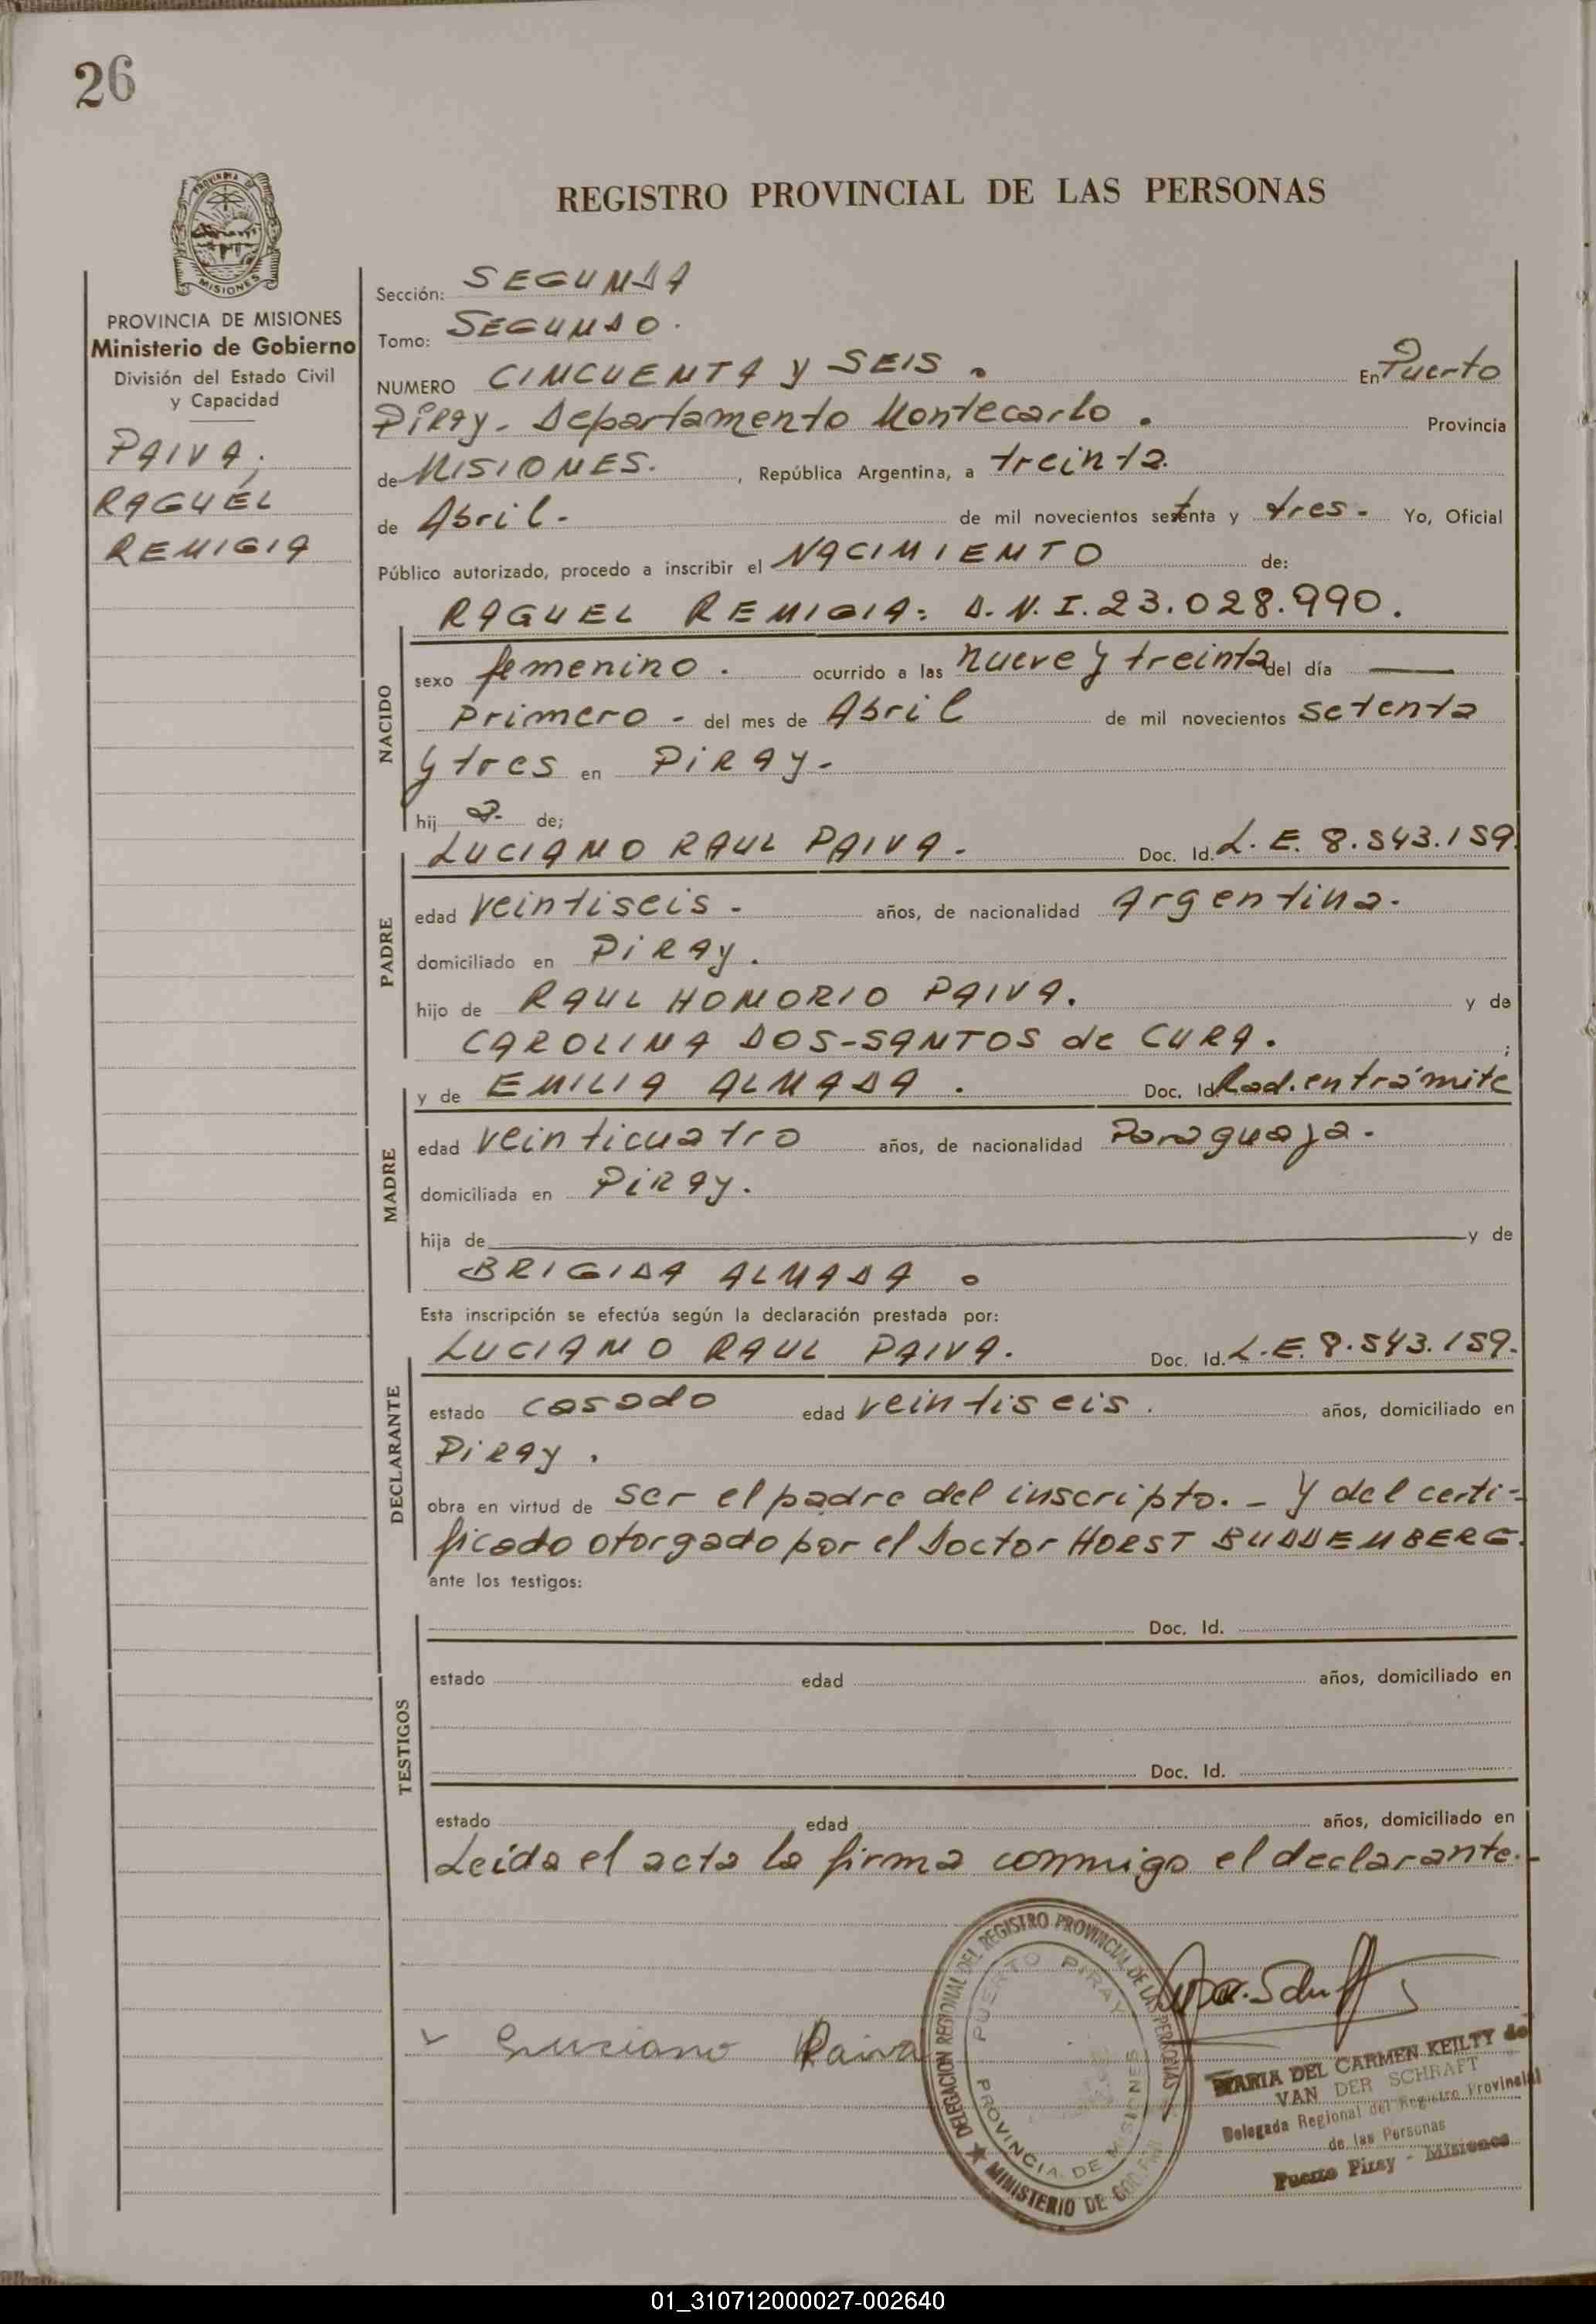 26
PROVINCIA DE
MISIONES
PROVINCIA DE MISIONES
Ministerio de Gobierno
División del Estado Civil
y Capacidad
PAIVA,
RAQUEL
REMIGIA
REGISTRO PROVINCIAL DE LAS PERSONAS
Sección: SEGUNDA
Tomo: SEGUNDO.
NUMERO CINCUENTA y SEIS. En Puerto
PiRAy. Departamento Montecarlo. Provincia
de MISIONES. , República Argentina, a treinta
de Abril. de mil novecientos setenta y tres. Yo, Oficial
Público autorizado, procedo a inscribir el NACIMIENTO de:
RAQUEL REMIGIA: D.N.I. 23.028.990.
NACIDO
sexo femenino. ocurrido a las nueve y treinta del día —
Primero - del mes de Abril de mil novecientos setenta
y tres en PiRAy.
hij a. de;
PADRE
LUCIANO RAUL PAIVA. Doc. Id. L.E. 8.543.159.
edad veintiseis - años, de nacionalidad Argentina.
domiciliado en PiRAy.
hijo de RAUL HONORIO PAIVA. y de
CAROLINA DOS-SANTOS de CURA. ;
MADRE
y de EMILIA ALMADA. Doc. Id. Rad. en trámite
edad veinticuatro años, de nacionalidad Paraguaya.
domiciliada en PiRAy.
hija de — y de
BRIGIDA ALMADA.
Esta inscripción se efectúa según la declaración prestada por:
DECLARANTE
LUCIANO RAUL PAIVA. Doc. Id. L.E. 8.543.159.
estado casado edad veintiseis. años, domiciliado en
PiRAy.
obra en virtud de ser el padre del inscripto. - Y del certi-
ficado otorgado por el Doctor HORST BUDDEMBERG.
ante los testigos:
TESTIGOS
Doc. Id.
estado edad años, domiciliado en
Doc. Id.
estado edad años, domiciliado en
Leída el acta la firma conmigo el declarante.
Luciano Paiva
DELEGACION REGIONAL DEL REGISTRO PROVINCIAL DE LAS PERSONAS
PUERTO PIRAY
PROVINCIA DE MISIONES
MINISTERIO DE GOB.
MARIA DEL CARMEN KEILTY de
VAN DER SCHRAFT
Delegada Regional del Registro Provincial
de las Personas
Puerto Piray - Misiones
01_310712000027-002640